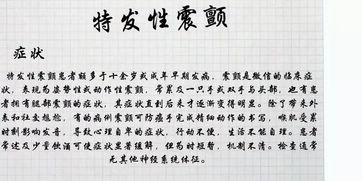 特发性震颤
症状
特发性震颤患者颇多于十余岁或成年早期发病，震颤是微信的临床症
状，表现为姿势性或动作性震颤，常累及一只手或双手与头部，也有患
者拥有腿部震颤的症状，其症状直到后来才逐渐变得明显。除了带来外
表和社交尴尬，有的病例震颤可防碍手完成精细动作的书写，喉肌受累
时则影响发音，导致心理自卑的症状，行动不便，生活不能自理。患者
常述及少量饮酒可使症状显著缓解，但为时短暂，机制不清。检查通常
无其他神经系统体征。